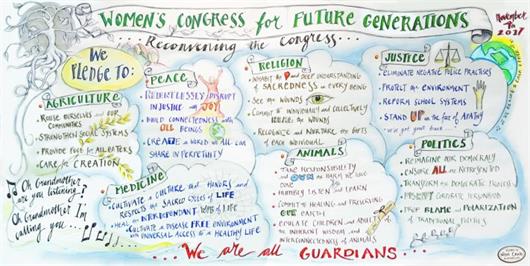 WOMEN'S CONGRESS for FUTURE GENERATIONS
November 7th 2017
...Reconvening the Congress...
We
PLEDGE TO:
AGRICULTURE
OURSELVES and OUR
COMMUNITIES
STRENGTHEN SOCIAL SYSTEMS
PROVIDE FOOD for ALL EATERS
CARE for CREATION
PEACE
RELENTLESSLY DISRUPT
INJUSTICE with JOY
BUILD CONNECTEDNESS with
ALL BEINGS
CREATE a WORLD WE ALL CAN
SHARE in PERPETUITY
RELIGION
INHABIT and DEEP UNDERSTANDING
of SACREDNESS in EVERY BEING
SEE the WOUNDS
COMMIT to INDIVIDUALLY and COLLECTIVELY
the WOUNDS
RECOGNIZE and NURTURE the GIFTS
of EACH INDIVIDUAL
JUSTICE
ELIMINATE NEGATIVE POLICE PRACTISES
PROTECT the ENVIRONMENT
REFORM SCHOOL SYSTEMS
STAND UP in the FACE of APATHY
we've got your back
MEDICINE
CULTIVATE a CULTURE that HONORS and
RESPECTS the SACRED CYCLES of LIFE
HEAL the INTERDEPENDANT WEB of LIFE
CULTIVATE a DISEASE FREE ENVIRONMENT
with UNIVERSAL ACCESS to a HEALTHY LIFE
ANIMALS
TAKE RESPONSIBILITY
and for the HARM WE HAVE
DONE
HUMBLY LISTEN and LEARN
COMMIT to HEALING and PROTECTING
OUR EARTH
EDUCATE CHILDREN and ADULTS of
the INHERENT WISDOM and
INTERCONNECTEDNESS of ANIMALS
POLITICS
REIMAGINE OUR DEMOCRACY
ENSURE ALL are REPRESENTED
TRANSFORM the DEMOCRATIC PROCESS
DROP BLAME and POLARIZATION
of TRADITIONAL POLITICS
Oh Grandmother
are you listening?
Oh Grandmother I'm
calling you....
...We are all GUARDIANS